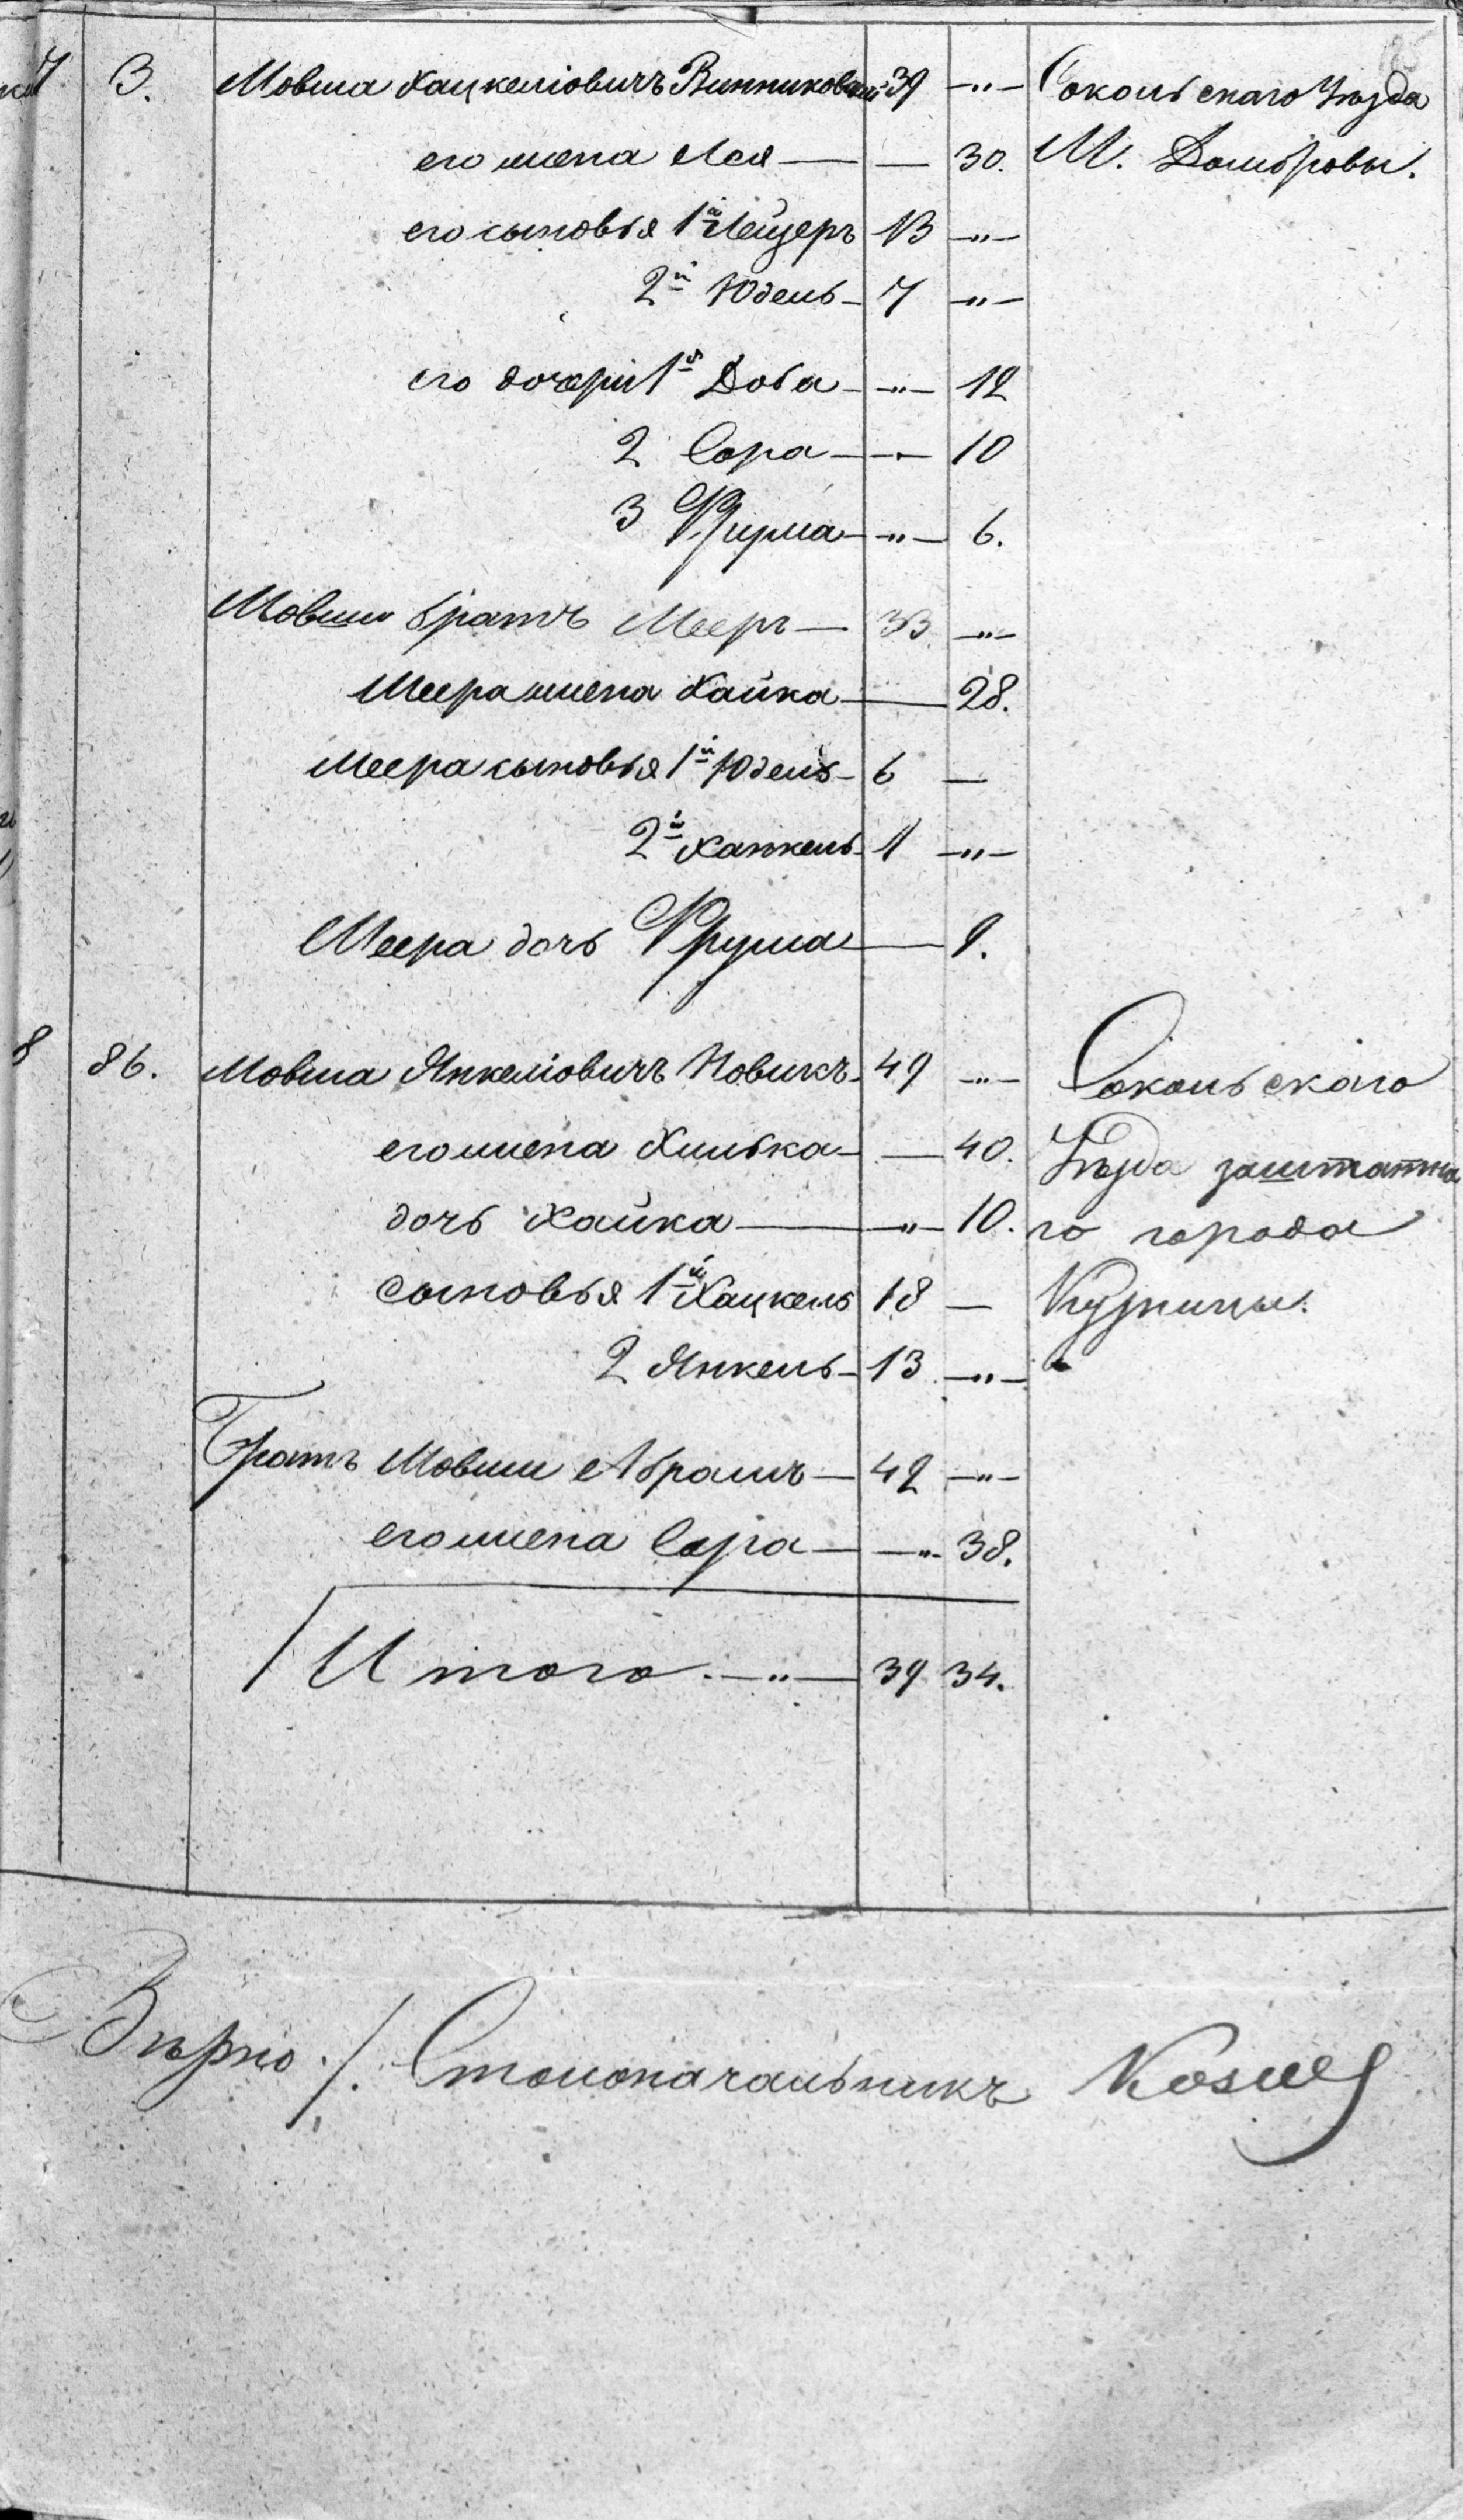 7 3. Мовша Хацкеліовичъ Винниковскій 39 —"— Сокольскаго Уѣзда
его жена Лея — — 30. М. Домбровы.
его сыновья 1й Лейзеръ 13 —"—
2й Юдель — 7 —"—
его дочери 1я Доба — —"— 12
2 Сора — — 10
3 Фрума — —"— 6.
Мовши братъ Мееръ — 33 —"—
Меера жена Хайка — 28.
Меера сыновья 1й Юдель — 6 —
2й Хацкель 1 —"—
Меера дочь Фрума — 9.
8 86. Мовша Янкеліовичъ Новикъ 49 —"— Сокольскаго
его жена Хилька — — 40. Уѣзда заштатна
дочь Хайка — " — 10. го города
сыновья 1й Хацкель 18 — Кузницы.
2 Янкель — 13 —"—
Братъ Мовши Абрамъ — 42 —"—
его жена Сора — —"— 38.
Итого. —"— 39 34.
Вѣрно: Столоначальникъ